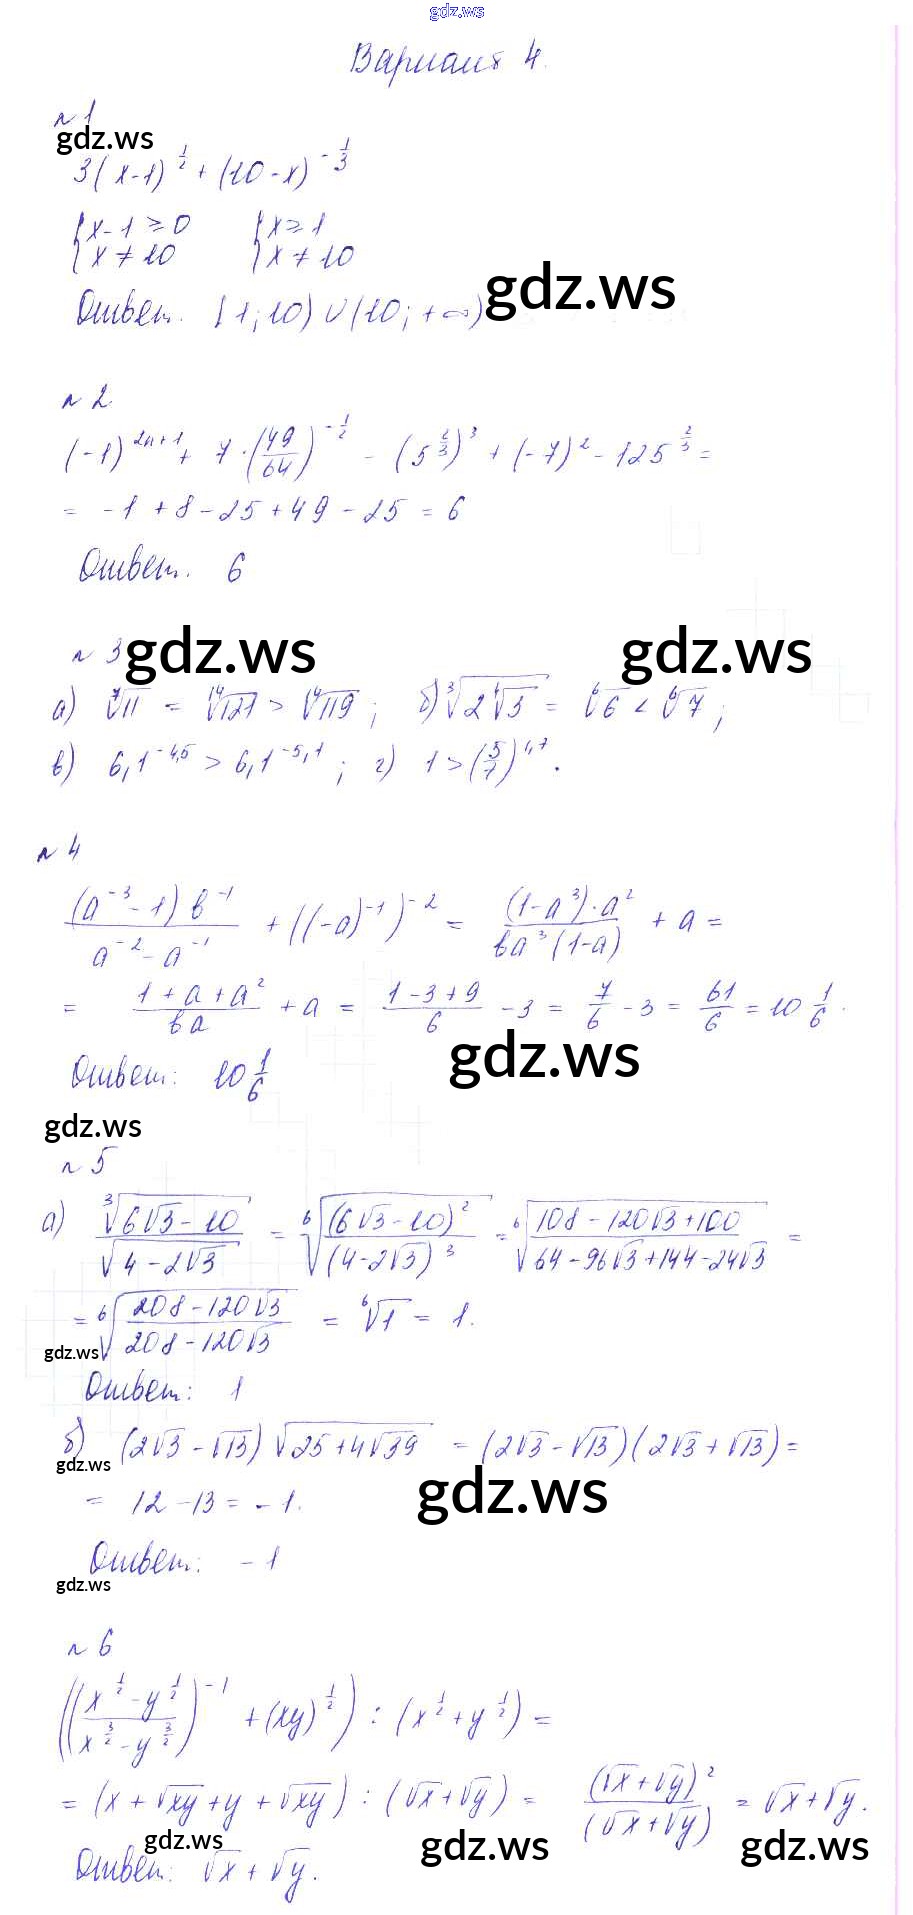 gdz.ws
Вариант 4.
n 1
gdz.ws
3(x-1)^{1/2} + (10-x)^{-1/3}
{x-1 ≥ 0 {x ≥ 1
{x ≠ 10 {x ≠ 10
gdz.ws
Ответ. [1; 10) ∪ (10; +∞)
n 2.
(-1)^{2n+1} + 7·(49/64)^{-1/2} - (5^{2/3})^3 + (-7)^2 - 125^{2/3} =
= -1 + 8 - 25 + 49 - 25 = 6
Ответ. 6
n 3
gdz.ws gdz.ws
а) ⁷√11 = ¹⁴√121 > ¹⁴√119 ; б) ³√(2√3) = ⁶√6 < ⁶√7 ;
в) 6,1^{-4,5} > 6,1^{-5,1} ; г) 1 > (5/7)^{4,7}.
n 4
(a^{-3} - 1) b^{-1} / (a^{-2} - a^{-1}) + ((-a)^{-1})^{-2} = (1-a^3)·a^2 / (ba^3(1-a)) + a =
= (1+a+a^2)/(ba) + a = (1-3+9)/6 - 3 = 7/6 - 3 = 61/6 = 10 1/6.
gdz.ws
Ответ: 10 1/6
gdz.ws
n 5
а) ³√(6√3 - 10) / √(4 - 2√3) = ⁶√((6√3-10)^2 / (4-2√3)^3) = ⁶√((108 - 120√3 + 100) / (64 - 96√3 + 144 - 24√3)) =
= ⁶√((208 - 120√3) / (208 - 120√3)) = ⁶√1 = 1.
gdz.ws
Ответ: 1
б) (2√3 - √13) √(25 + 4√39) = (2√3 - √13)(2√3 + √13) =
gdz.ws
gdz.ws
= 12 - 13 = -1.
Ответ: -1
gdz.ws
n 6
(((x^{1/2} - y^{1/2}) / (x^{3/2} - y^{3/2}))^{-1} + (xy)^{1/2}) : (x^{1/2} + y^{1/2}) =
= (x + √xy + y + √xy) : (√x + √y) = (√x + √y)^2 / (√x + √y) = √x + √y.
gdz.ws gdz.ws gdz.ws
Ответ: √x + √y.